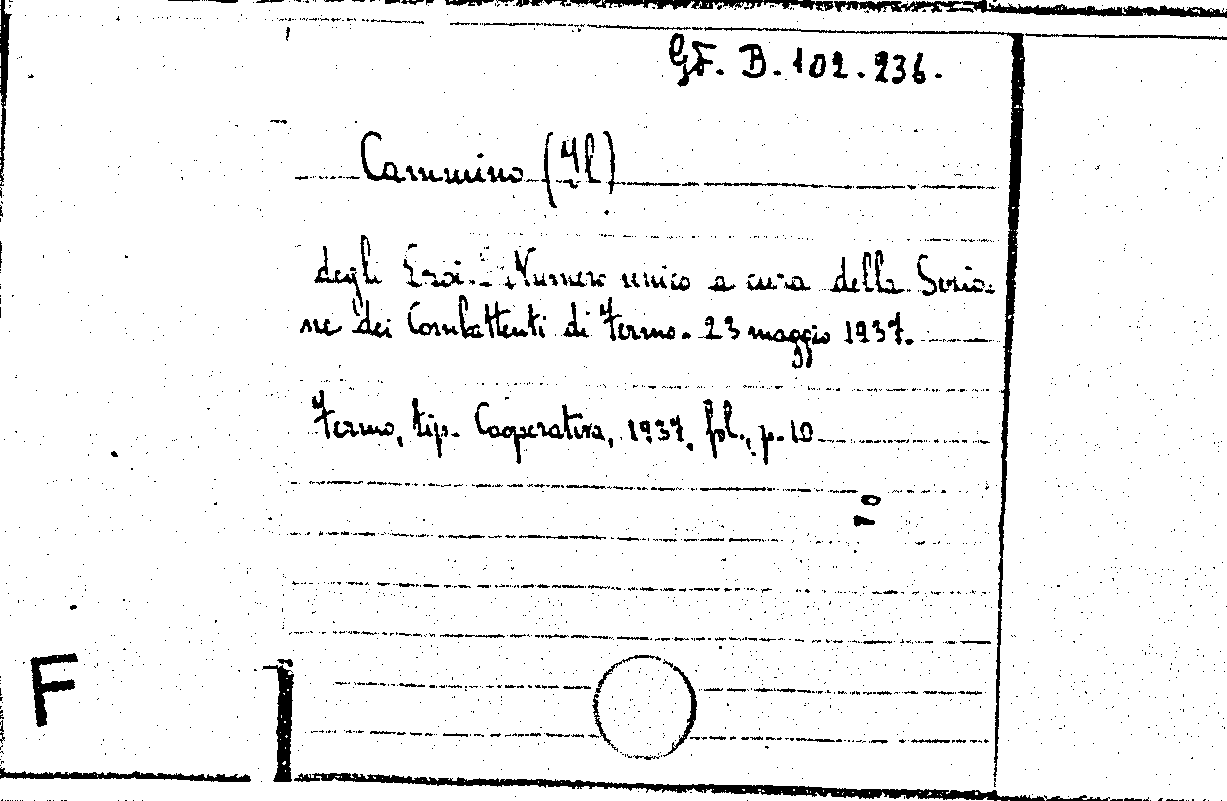 GF. B. 102.236.
Cammino (Il)
degli Eroi. - Numero unico a cura della Sezio-
ne dei Combattenti di Fermo. 23 maggio 1937.
Fermo, tip. Cooperativa, 1937, fol., p. 10
10
F